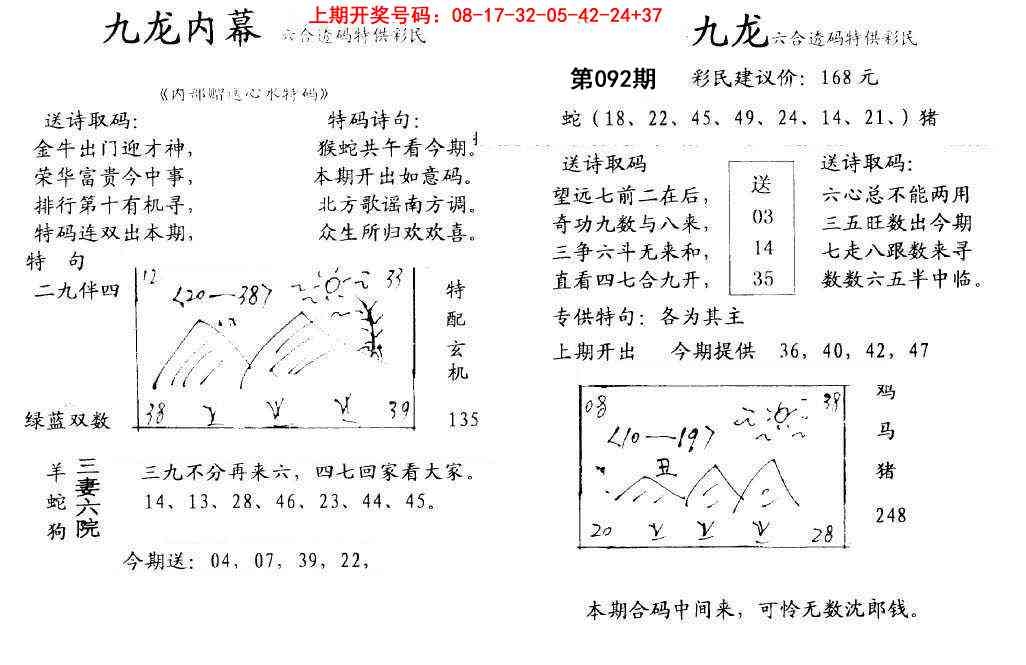 上期开奖号码：08-17-32-05-42-24+37
九龙内幕 六合透码特供彩民
《内部赠送心水特码》
送诗取码：
金牛出门迎才神，
荣华富贵今中事，
排行第十有机寻，
特码连双出本期，
特码诗句：
猴蛇共午看今期。
本期开出如意码。
北方歌谣南方调。
众生所归欢欢喜。
特 句
二九伴四
绿蓝双数
12
33
〈20—38〉
38
39
特
配
玄
机
135
羊
蛇
狗
三妻六院
三九不分再来六，四七回家看大家。
14、13、28、46、23、44、45。
今期送：04，07，39，22，
九龙 六合透码特供彩民
第092期 彩民建议价：168元
蛇（18、22、45、49、24、14、21、）猪
送诗取码
望远七前二在后，
奇功九数与八来，
三争六斗无来和，
直看四七合九开，
送
03
14
35
送诗取码：
六心总不能两用
三五旺数出今期
七走八跟数来寻
数数六五半中临。
专供特句：各为其主
上期开出 今期提供 36，40，42，47
08
〈10—19〉
丑
20
28
鸡
马
猪
248
本期合码中间来，可怜无数沈郎钱。